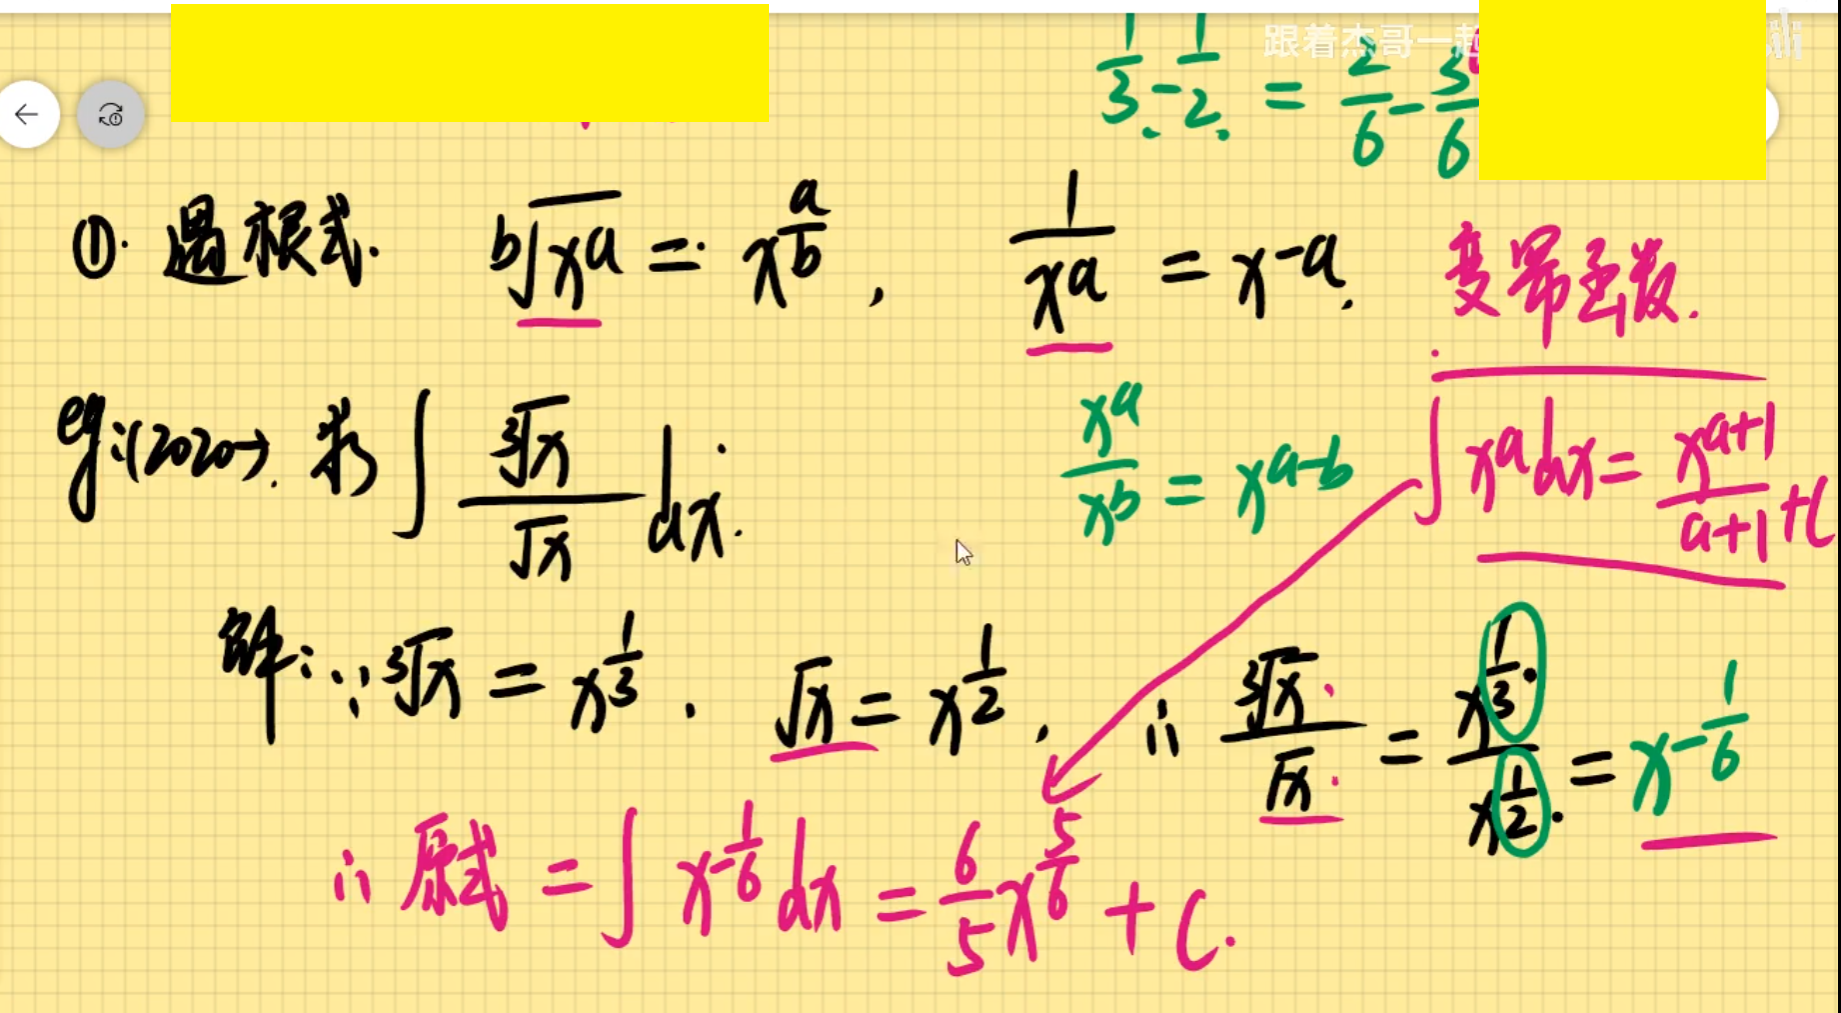 跟着杰哥一起
1/3 - 1/2 = 2/6 - 3/6
①. 遇根式. ᵇ√xᵃ = x^(a/b), 1/xᵃ = x^(-a). 变幂函数.
eg:(2020→). 求∫ ³√x/√x dx. xᵃ/xᵇ = x^(a-b) ∫xᵃdx = x^(a+1)/(a+1) + C
解: ∵ ³√x = x^(1/3). √x = x^(1/2). ∴ ³√x/√x = x^(1/3)/x^(1/2) = x^(-1/6)
∴ 原式 = ∫ x^(-1/6) dx = 6/5 x^(5/6) + C.